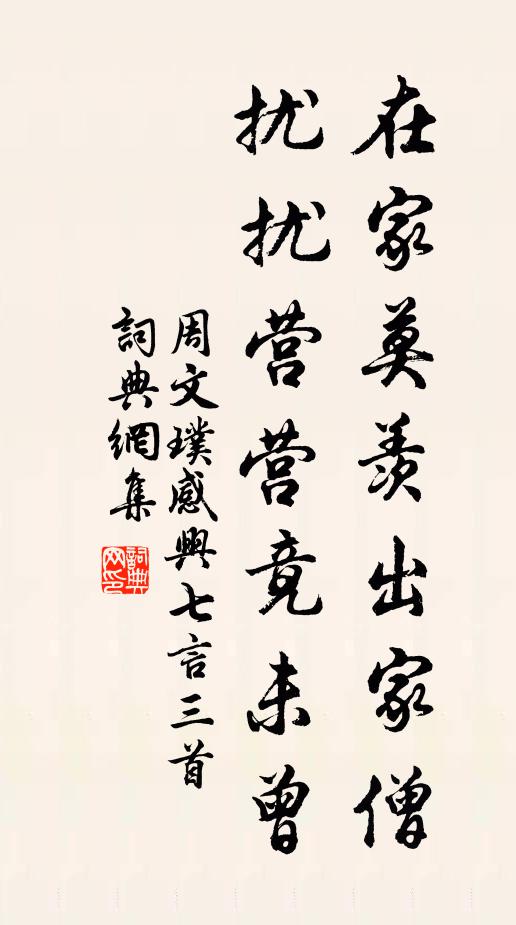 在家莫羡出家僧
扰扰营营竟未曾
周文璞感興七言三首
詞典網集
詞典网印